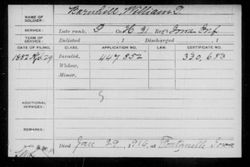 NAME OF SOLDIER: Barnhill, William P.
SERVICE: Late rank, P Co. H 31 Reg't Iowa Inf.
Enlisted 1 Discharged 1
DATE OF FILING. CLASS. APPLICATION NO. CERTIFICATE NO.
1882 May 29 Invalid, 447,852 332,683
Widow,
Minor,
ADDITIONAL SERVICES:
REMARKS:
Died Jan 29, 1914, at Fontanelle Iowa